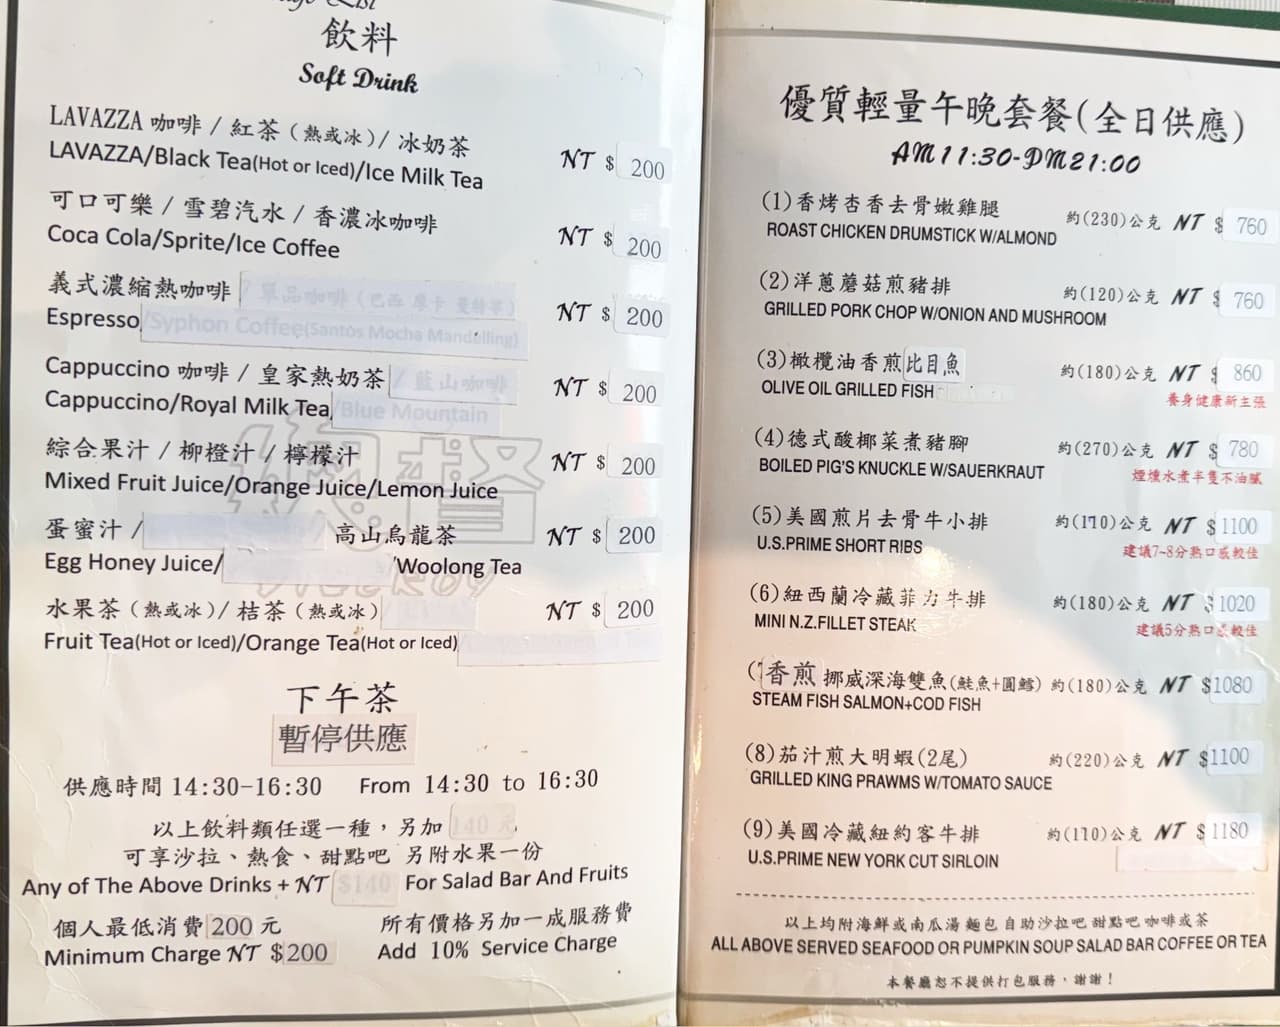 飲料
Soft Drink
LAVAZZA 咖啡 / 紅茶 (熱或冰) / 冰奶茶
LAVAZZA/Black Tea(Hot or Iced)/Ice Milk Tea NT $ 200
可口可樂 / 雪碧汽水 / 香濃冰咖啡
Coca Cola/Sprite/Ice Coffee NT $ 200
義式濃縮熱咖啡 / 單品咖啡 (巴西 摩卡 曼特寧)
Espresso/Syphon Coffee(Santos Mocha Mandelling) NT $ 200
Cappuccino 咖啡 / 皇家熱奶茶 / 藍山咖啡
Cappuccino/Royal Milk Tea/Blue Mountain NT $ 200
綜合果汁 / 柳橙汁 / 檸檬汁
Mixed Fruit Juice/Orange Juice/Lemon Juice NT $ 200
蛋蜜汁 / 高山烏龍茶
Egg Honey Juice/ /Woolong Tea NT $ 200
水果茶 (熱或冰) / 桔茶 (熱或冰)
Fruit Tea(Hot or Iced)/Orange Tea(Hot or Iced) NT $ 200
下午茶
暫停供應
供應時間 14:30-16:30 From 14:30 to 16:30
以上飲料類任選一種，另加 140 元
可享沙拉、熱食、甜點吧 另附水果一份
Any of The Above Drinks + NT $140 For Salad Bar And Fruits
個人最低消費 200 元 所有價格另加一成服務費
Minimum Charge NT $200 Add 10% Service Charge
優質輕量午晚套餐(全日供應)
AM11:30-PM21:00
(1)香烤杏香去骨嫩雞腿 約(230)公克 NT $ 760
ROAST CHICKEN DRUMSTICK W/ALMOND
(2)洋蔥蘑菇煎豬排 約(120)公克 NT $ 760
GRILLED PORK CHOP W/ONION AND MUSHROOM
(3)橄欖油香煎比目魚 約(180)公克 NT $ 860
OLIVE OIL GRILLED FISH 養身健康新主張
(4)德式酸椰菜煮豬腳 約(270)公克 NT $ 780
BOILED PIG'S KNUCKLE W/SAUERKRAUT 煙燻水煮半隻不油膩
(5)美國煎片去骨牛小排 約(170)公克 NT $1100
U.S.PRIME SHORT RIBS 建議7-8分熟口感較佳
(6)紐西蘭冷藏菲力牛排 約(180)公克 NT $1020
MINI N.Z.FILLET STEAK 建議5分熟口感較佳
(7香煎 挪威深海雙魚(鮭魚+圓鱈) 約(180)公克 NT $1080
STEAM FISH SALMON+COD FISH
(8)茄汁煎大明蝦(2尾) 約(220)公克 NT $1100
GRILLED KING PRAWMS W/TOMATO SAUCE
(9)美國冷藏紐約客牛排 約(170)公克 NT $1180
U.S.PRIME NEW YORK CUT SIRLOIN
以上均附海鮮或南瓜湯 麵包 自助沙拉吧 甜點吧 咖啡或茶
ALL ABOVE SERVED SEAFOOD OR PUMPKIN SOUP SALAD BAR COFFEE OR TEA
本餐廳恕不提供打包服務，謝謝！